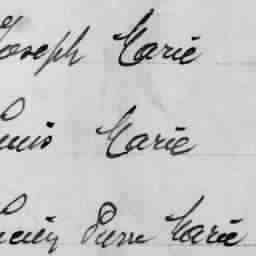 Joseph Marie
Louis Marie
Lucien Pierre Marie